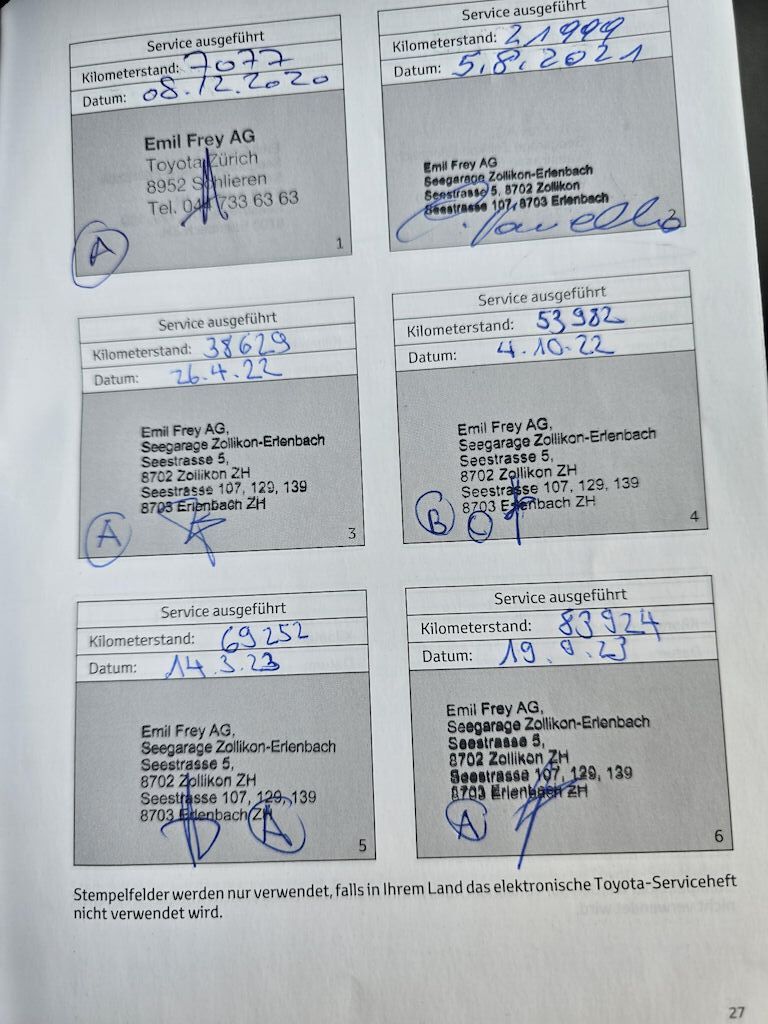 Service ausgeführt
Kilometerstand: 7077
Datum: 08.12.2020
Emil Frey AG
Toyota Zürich
8952 Schlieren
Tel. 044 733 63 63
A
1
Service ausgeführt
Kilometerstand: 21999
Datum: 5.8.2021
Emil Frey AG
Seegarage Zollikon-Erlenbach
Seestrasse 5, 8702 Zollikon
Seestrasse 107, 8703 Erlenbach
2
Service ausgeführt
Kilometerstand: 38629
Datum: 26.4.22
Emil Frey AG,
Seegarage Zollikon-Erlenbach
Seestrasse 5,
8702 Zollikon ZH
Seestrasse 107, 129, 139
8703 Erlenbach ZH
A
3
Service ausgeführt
Kilometerstand: 53982
Datum: 4.10.22
Emil Frey AG,
Seegarage Zollikon-Erlenbach
Seestrasse 5,
8702 Zollikon ZH
Seestrasse 107, 129, 139
8703 Erlenbach ZH
B C
4
Service ausgeführt
Kilometerstand: 69252
Datum: 14.3.23
Emil Frey AG,
Seegarage Zollikon-Erlenbach
Seestrasse 5,
8702 Zollikon ZH
Seestrasse 107, 129, 139
8703 Erlenbach ZH
A
5
Service ausgeführt
Kilometerstand: 83924
Datum: 19.9.23
Emil Frey AG,
Seegarage Zollikon-Erlenbach
Seestrasse 5,
8702 Zollikon ZH
Seestrasse 107, 129, 139
8703 Erlenbach ZH
A
6
Stempelfelder werden nur verwendet, falls in Ihrem Land das elektronische Toyota-Serviceheft
nicht verwendet wird.
27